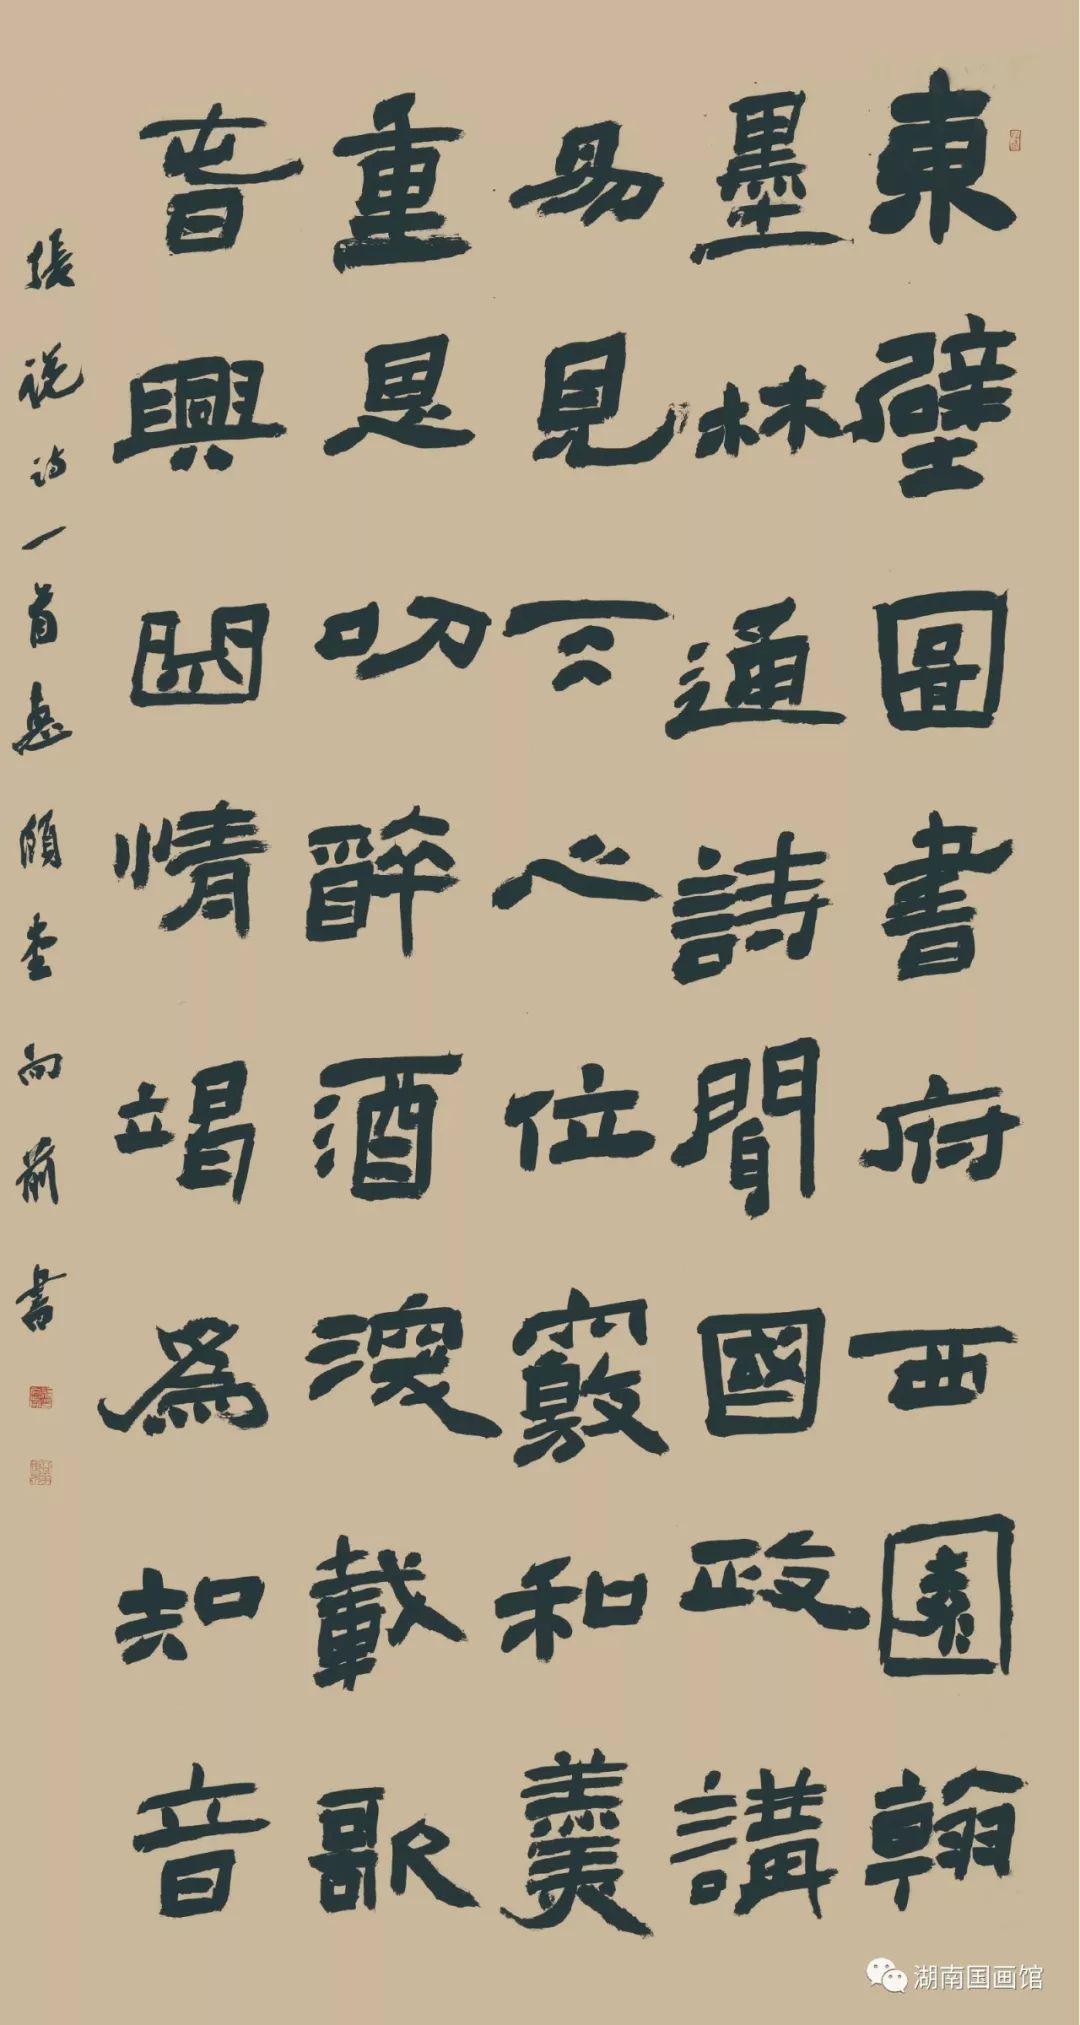 東壁圖書府西園翰
墨林通詩聞國政講
易見天心位竊和羹
重恩叨醉酒深載歌
春興曲情竭為知音
張説诗一首惠頤堂向前書
湖南国画馆